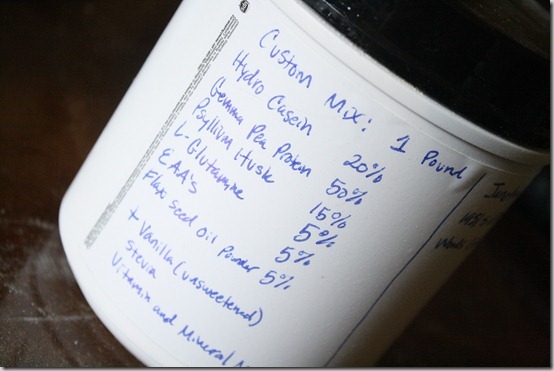 Custom Mix: 1 Pound
Hydro Casein 20%
Gemma Pea Protein 50%
Psyllium Husk 15%
L-Glutamine 5%
EAA's 5%
Flax Seed Oil Powder 5%
+ Vanilla (unsweetened)
Stevia
Vitamin and Mineral